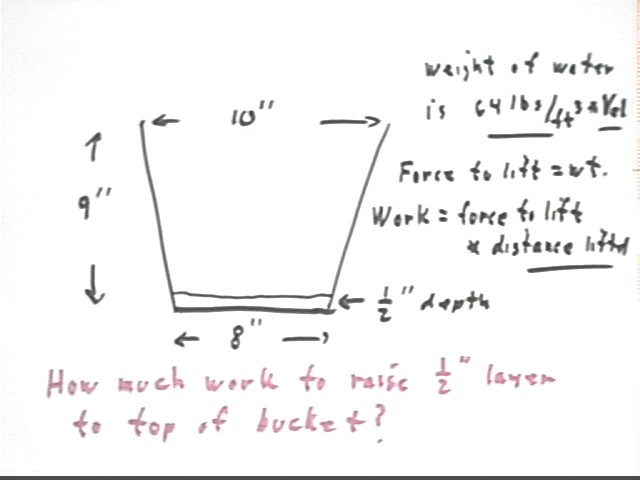 weight of water
is 64 lbs/ft³ * Vol
10"
Force to lift = wt.
9"
Work = force to lift
* distance liftd
½" depth
8"
How much work to raise ½" layer
to top of bucket?